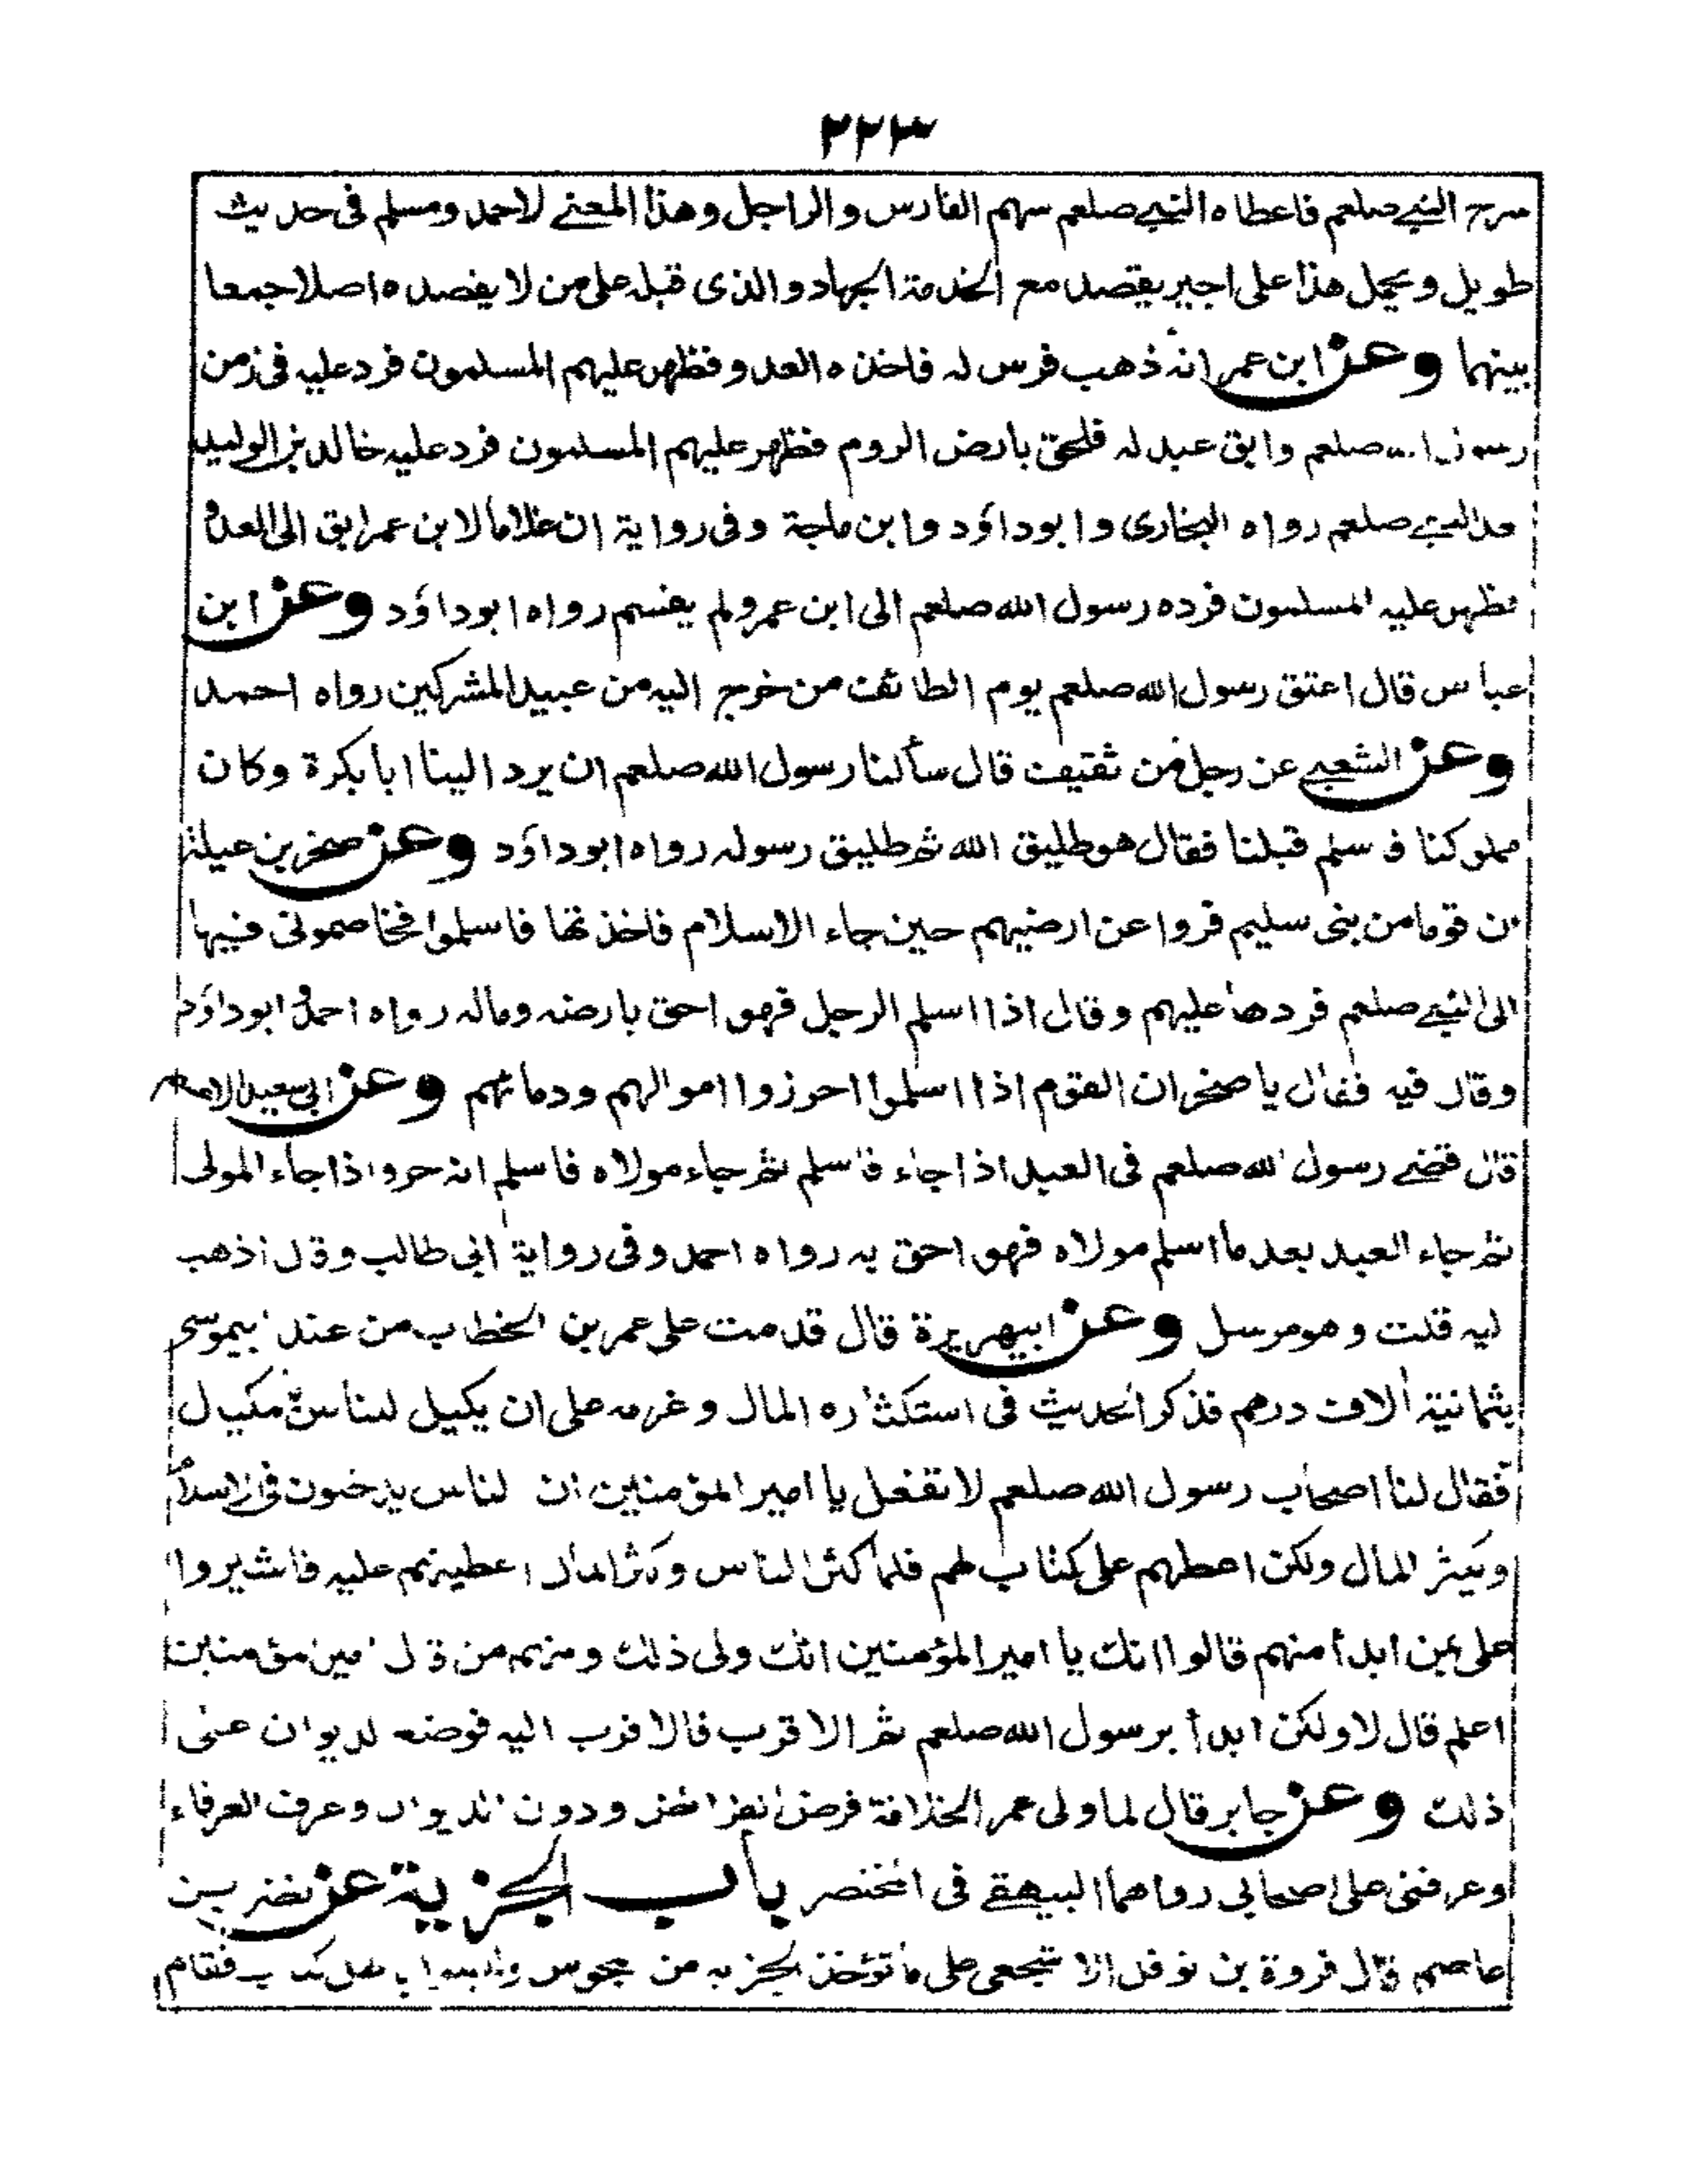 ٢٢٣
سرح النبي صلعم فاعطاه النبي صلعم سهم الفارس والراجل وهذا المعنے لاحمد ومسلم فى حديث
طويل ويحمل هذا على اجير يقصد مع الخدمة الجهاد والذى قبله على من لا يقصده اصلا جمعا
بينهما وعن ابن عمر انه ذهب فرس له فاخذه العدو فظهر عليهم المسلمون فرد عليه فى زمن
رسول الله صلعم وابق عبد له فلحق بارض الروم فظهر عليهم المسلمون فرد عليه خالد بن الوليد
بعد النبي صلعم رواه البخارى وابو داؤد وابن ماجة وفى رواية ان غلاما لابن عمر ابق الى العدو
فظهر عليه المسلمون فرده رسول الله صلعم الى ابن عمر ولم يقسم رواه ابو داؤد وعن ابن
عباس قال اعتق رسول الله صلعم يوم الطائف من خرج اليه من عبيد المشركين رواه احمد
وعن الشعبے عن رجل من ثقيف قال سألنا رسول الله صلعم ان يرد الينا ابا بكرة وكان
مملوكنا فاسلم قبلنا فقال هو طليق الله ثم طليق رسوله رواه ابو داؤد وعن صخر بن عيلة
ان قوما من بنى سليم فروا عن ارضيهم حين جاء الاسلام فاخذتها فاسلموا فخاصمونى فيها
الى النبي صلعم فردها عليهم وقال اذا اسلم الرجل فهو احق بارضه وماله رواه احمد وابو داؤد
وقال فيه فقال يا صخر ان القوم اذا اسلموا احرزوا اموالهم ودمائهم وعن ابى سعيد الاعسم
قال قضے رسول الله صلعم فى العبد اذا جاء فاسلم ثم جاء مولاه فاسلم انه حر واذا جاء المولى
ثم جاء العبد بعد ما اسلم مولاه فهو احق به رواه احمد وفى رواية ابى طالب وقال اذهب
ليه قلت وهو مرسل وعن ابيهريرة قال قدمت على عمر بن الخطاب من عند ابيموسى
بثمانية ألاف درهم فذكر الحديث فى استكثاره المال وعزمه على ان يكيل للناس مكيال
فقال لنا اصحاب رسول الله صلعم لا تفعل يا امير المؤمنين ان الناس يدخلون فى الاسلام
ويكثر المال ولكن اعطهم على كتاب لهم فلما كثر الناس وكثر المال اعطيتهم عليه فاشيروا
على بمن ابدأ منهم قالوا انك يا امير المؤمنين انك ولى ذلك ومنهم من قال امير المؤمنين
اعلم قال لا ولكن ابدأ برسول الله صلعم ثم الاقرب فالاقرب اليه فوضع الديوان على
ذلك وعن جابر قال لما ولى عمر الخلافة فرض الفرائض ودون الديوان وعرف العرفاء
وعرفنى على اصحابى رواهما البيهقے فى المختصر باب الجزية عن نصر بن
عاصم قال فروة بن نوفل الا تؤخذ الجزية من مجوس وليسوا باهل كتاب فقام